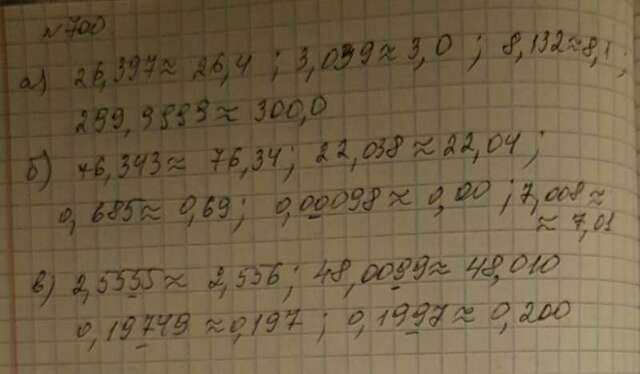 №700
а) 26,397≈ 26,4 ; 3,039≈3,0 ; 8,132≈8,1 ;
299,9999≈ 300,0
б) 76,343≈ 76,34; 22,038≈22,04;
0,685≈ 0,69; 0,00098≈ 0,00 ; 7,008≈
≈ 7,01
в) 2,5555≈ 2,556; 48,0099≈48,010
0,19749≈0,197 ; 0,1997≈ 0,200